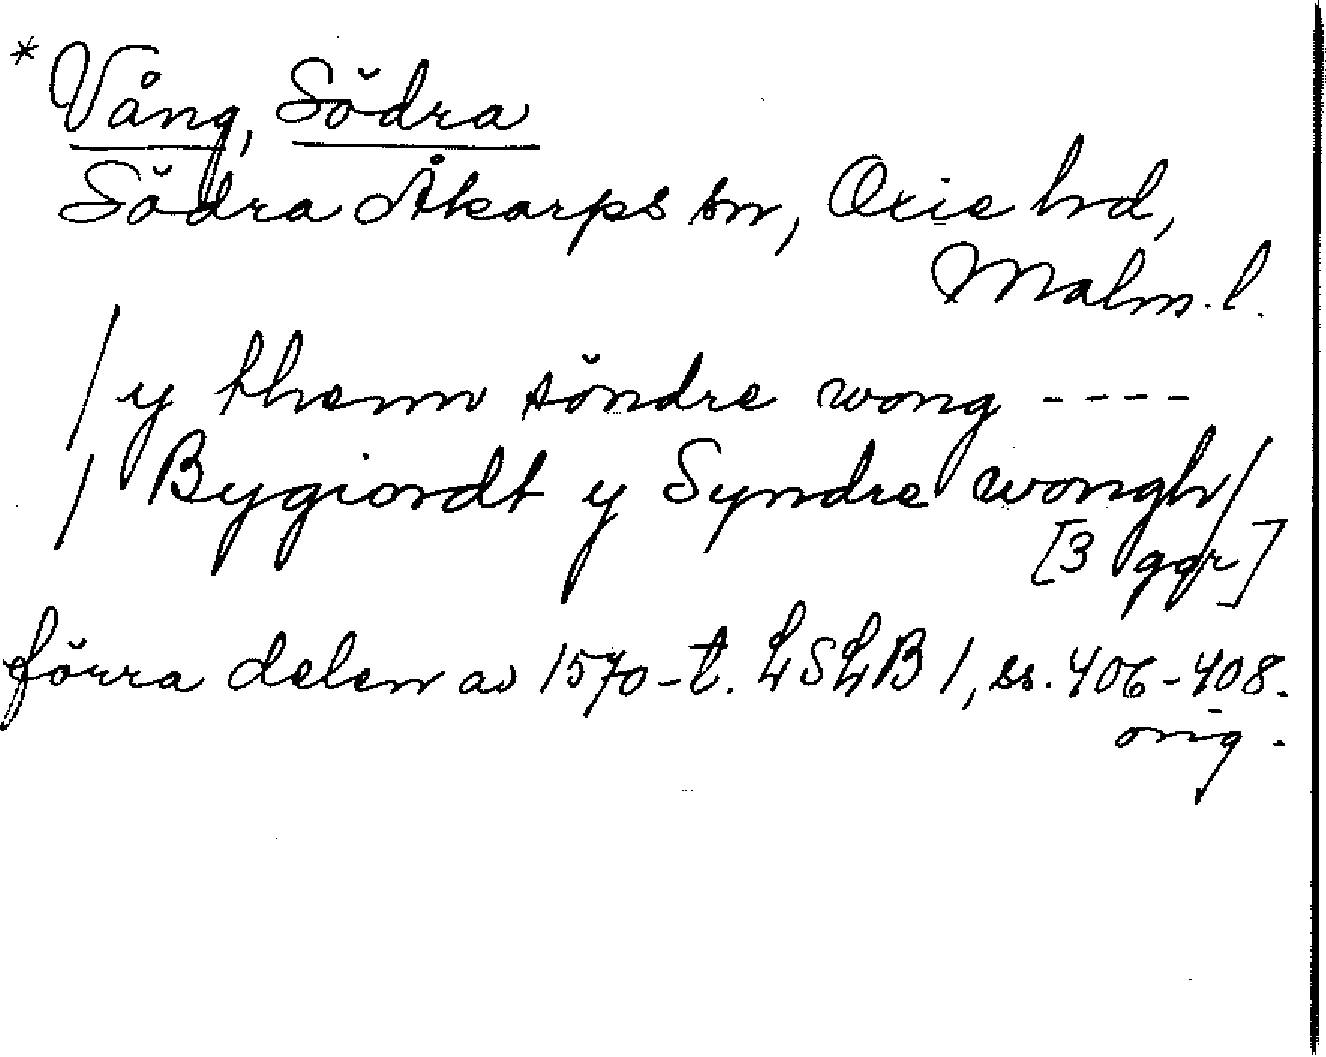 *Vång, Södra
Södra Åkarps sn, Oxie hd,
Malm. l.
/y thenn söndre wong ----
/ Bygiordt y Syndre wongh/
[3 ggr]
förra delen av 1570-t. LSLB 1, ss. 406-408.
orig.